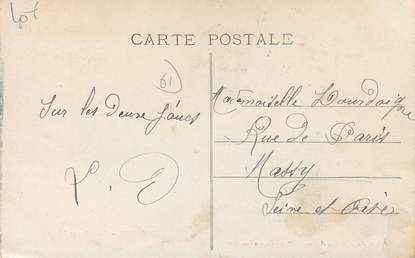 Lot
CARTE POSTALE
61
Sur les deux joues
L. D
Mademoiselle Lourdaigne
Rue de Paris
Massy
Seine et Oise